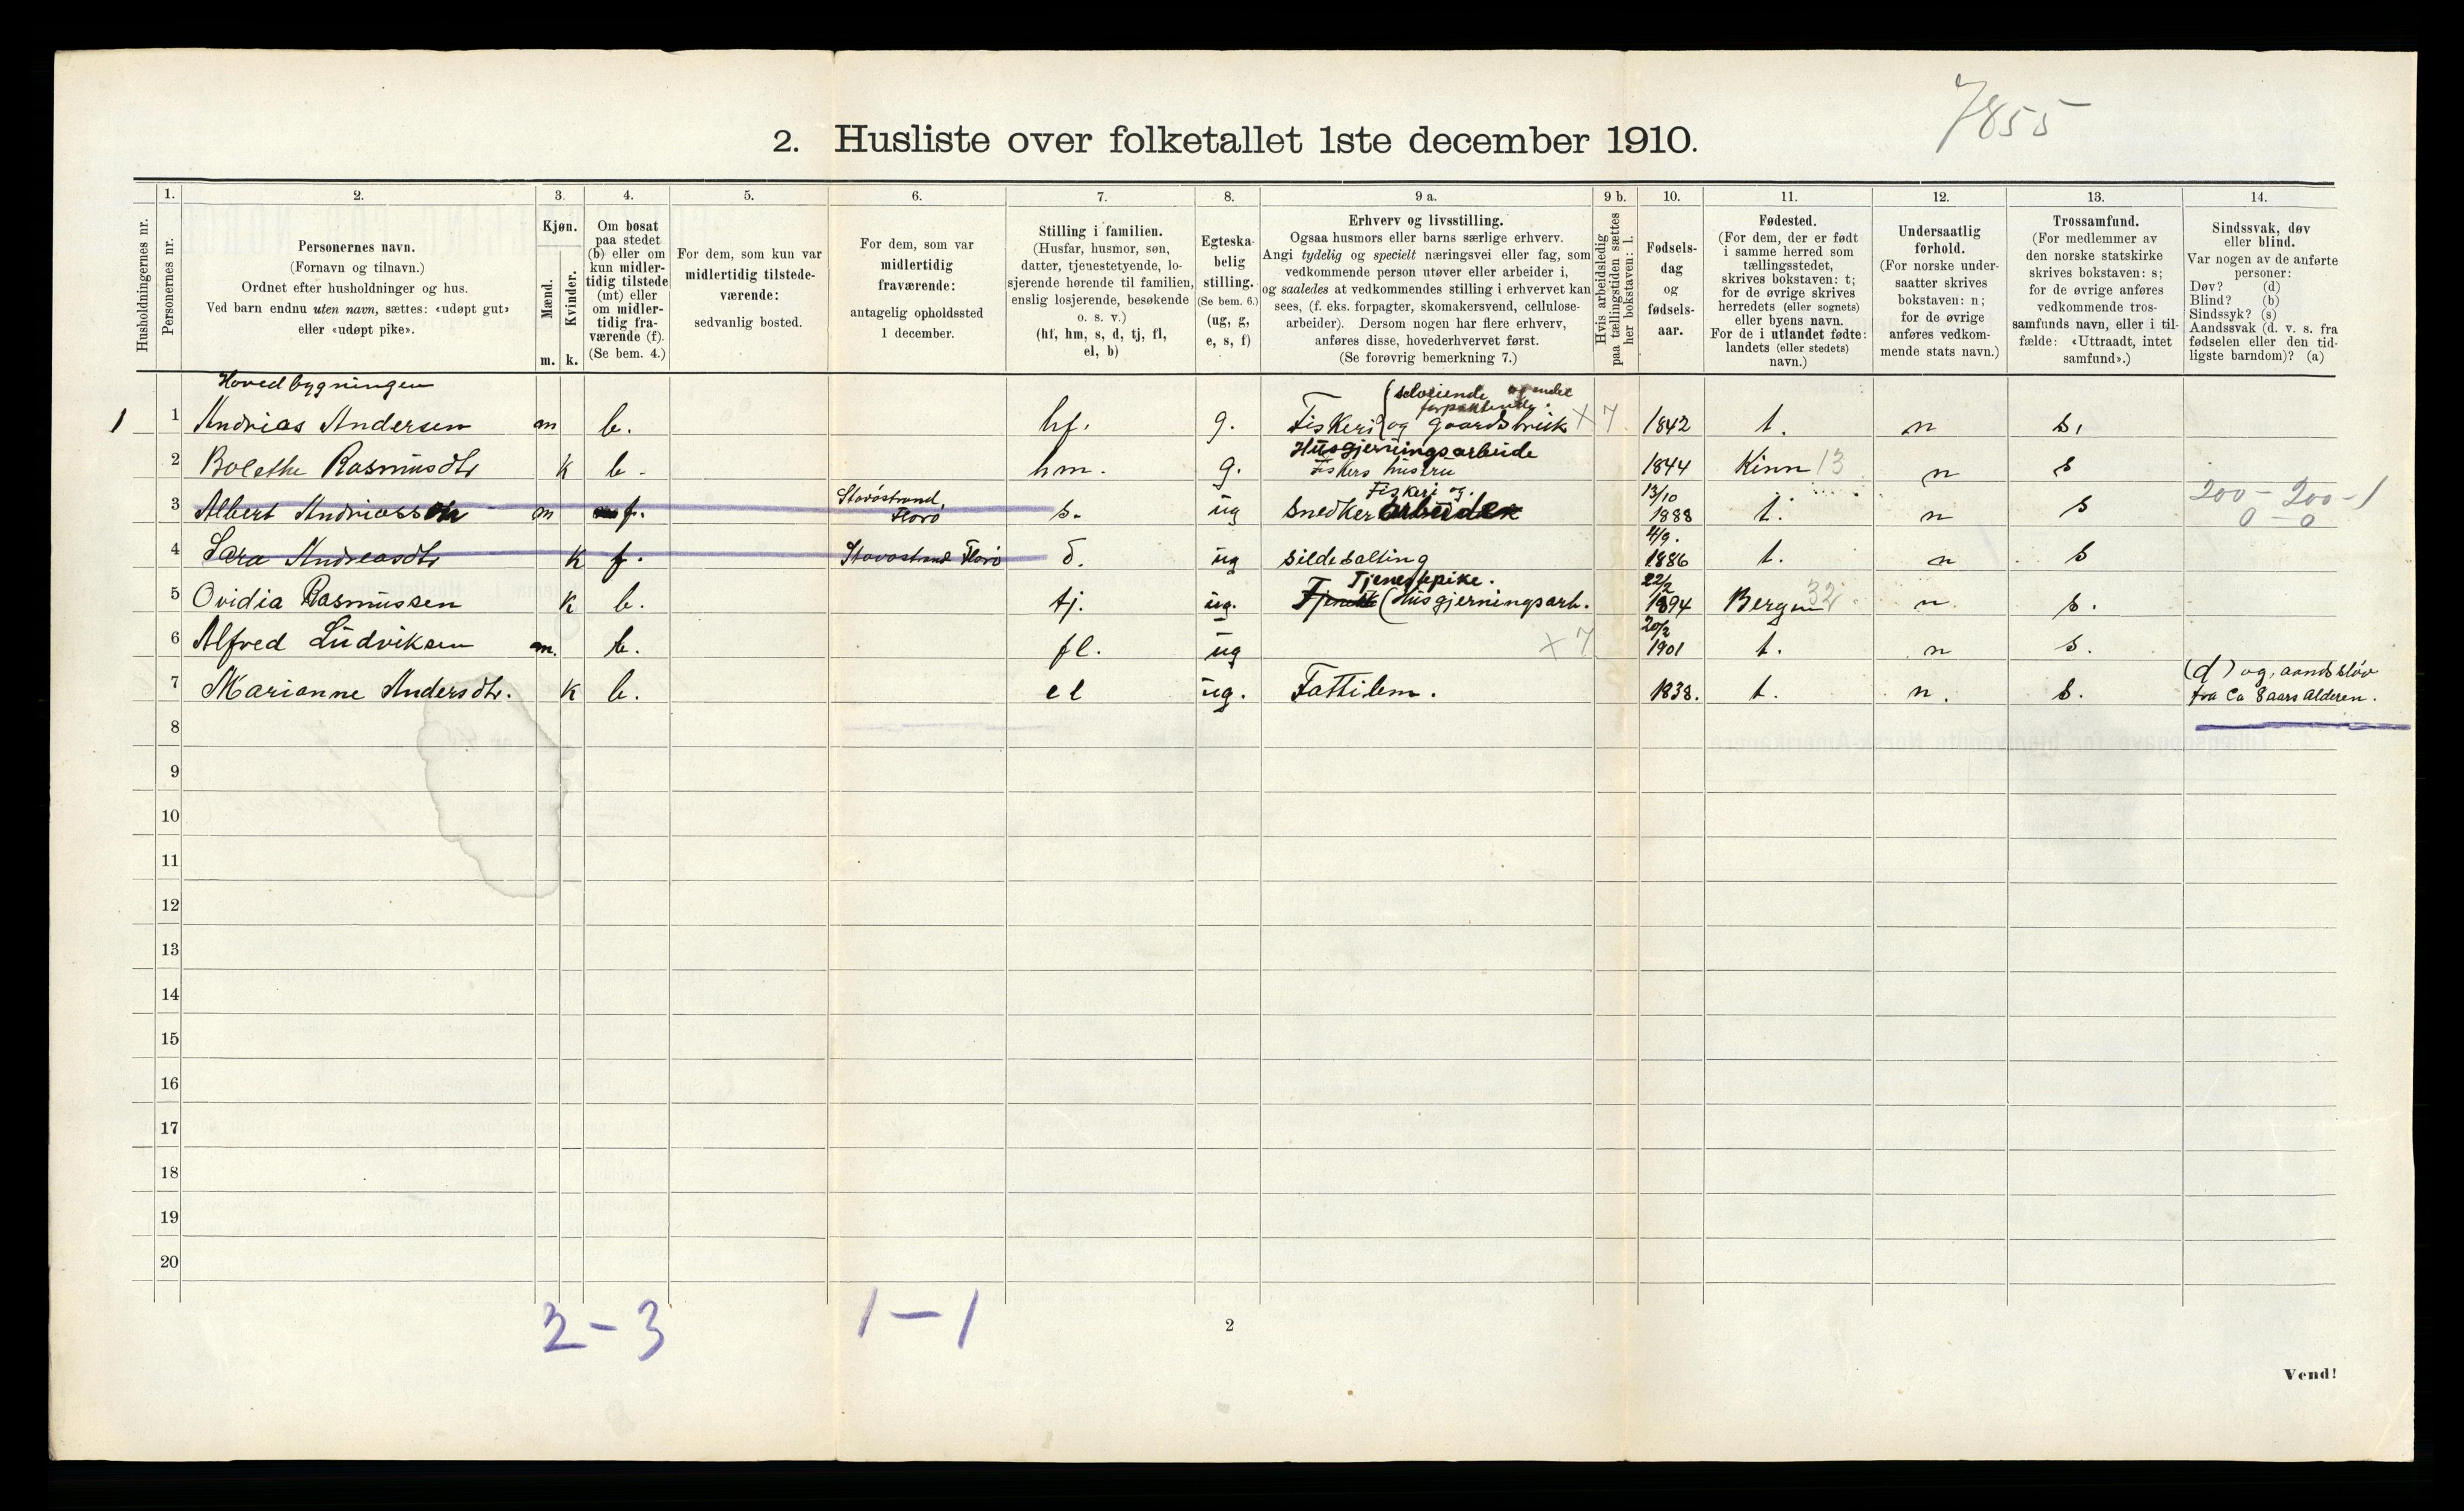 7855
2. Husliste over folketallet 1ste december 1910.
Husholdningernes nr.
1.
Personernes nr.
2.
Personernes navn.
(Fornavn og tilnavn.)
Ordnet efter husholdninger og hus.
Ved barn endnu uten navn, sættes: «udøpt gut»
eller «udøpt pike».
3.
Kjøn.
Mænd.
Kvinder.
m. k.
4.
Om bosat
paa stedet
(b) eller om
kun midler-
tidig tilstede
(mt) eller
om midler-
tidig fra-
værende (f).
(Se bem. 4.)
5.
For dem, som kun var
midlertidig tilstede-
værende:
sedvanlig bosted.
6.
For dem, som var
midlertidig
fraværende:
antagelig opholdssted
1 december.
7.
Stilling i familien.
(Husfar, husmor, søn,
datter, tjenestetyende, lo-
sjerende hørende til familien,
enslig losjerende, besøkende
o. s. v.)
(hf, hm, s, d, tj, fl,
el, b)
8.
Egteska-
belig
stilling.
(Se bem. 6.)
(ug, g,
e, s, f)
9 a.
Erhverv og livsstilling.
Ogsaa husmors eller barns særlige erhverv.
Angi tydelig og specielt næringsvei eller fag, som
vedkommende person utøver eller arbeider i,
og saaledes at vedkommendes stilling i erhvervet kan
sees, (f. eks. forpagter, skomakersvend, cellulose-
arbeider). Dersom nogen har flere erhverv,
anføres disse, hovederhvervet først.
(Se forøvrig bemerkning 7.)
9 b.
Hvis arbeidsledig
paa tællingstiden sættes
her bokstaven: l.
10.
Fødsels-
dag
og
fødsels-
aar.
11.
Fødested.
(For dem, der er født
i samme herred som
tællingsstedet,
skrives bokstaven: t;
for de øvrige skrives
herredets (eller sognets)
eller byens navn.
For de i utlandet fødte:
landets (eller stedets)
navn.)
12.
Undersaatlig
forhold.
(For norske under-
saatter skrives
bokstaven: n;
for de øvrige
anføres vedkom-
mende stats navn.)
13.
Trossamfund.
(For medlemmer av
den norske statskirke
skrives bokstaven: s;
for de øvrige anføres
vedkommende tros-
samfunds navn, eller i til-
fælde: «Uttraadt, intet
samfund».)
14.
Sindssvak, døv
eller blind.
Var nogen av de anførte
personer:
Døv? (d)
Blind? (b)
Sindssyk? (s)
Aandssvak (d. v. s. fra
fødselen eller den tid-
ligste barndom)? (a)
Hovedbygningen
(selveiende og endel
forpaktende.
1 1 Andrias Andersen m b. hf. g. Fiskeri og gaardsbruk X 7 1842 t. n s.
Husgjerningsarbeide
2 Bolethe Rasmusdtr k b. hm. g. Fiskers hustru 1844 Kinn 13 n s
Stavöstrand Fiskeri og. 13/10 200 - 200 - 1
3 Albert Andriassen m f. Florö s. ug Snedker arbeider 1888 t. n s 0 - 0
4/9.
4 Sara Andreasdtr k f. Stavöstrand Florö d. ug sildesalting 1886 t. n s
Tjenestepike. 22/2
5 Ovidia Rasmussen k b. tj. ug. (Husgjerningsarb. 1894 Bergen 32 n s.
20/2
6 Alfred Ludviksen m. b. fl. ug X 7 1901 t. n s.
(d) og, aandsslöv
7 Marianne Andersdtr. k b. el ug. Fattilem. 1838. t. n. s. fra ca 8 aars alderen.
8
9
10
11
12
13
14
15
16
17
18
19
20
2 - 3 1 - 1
2
Vend!